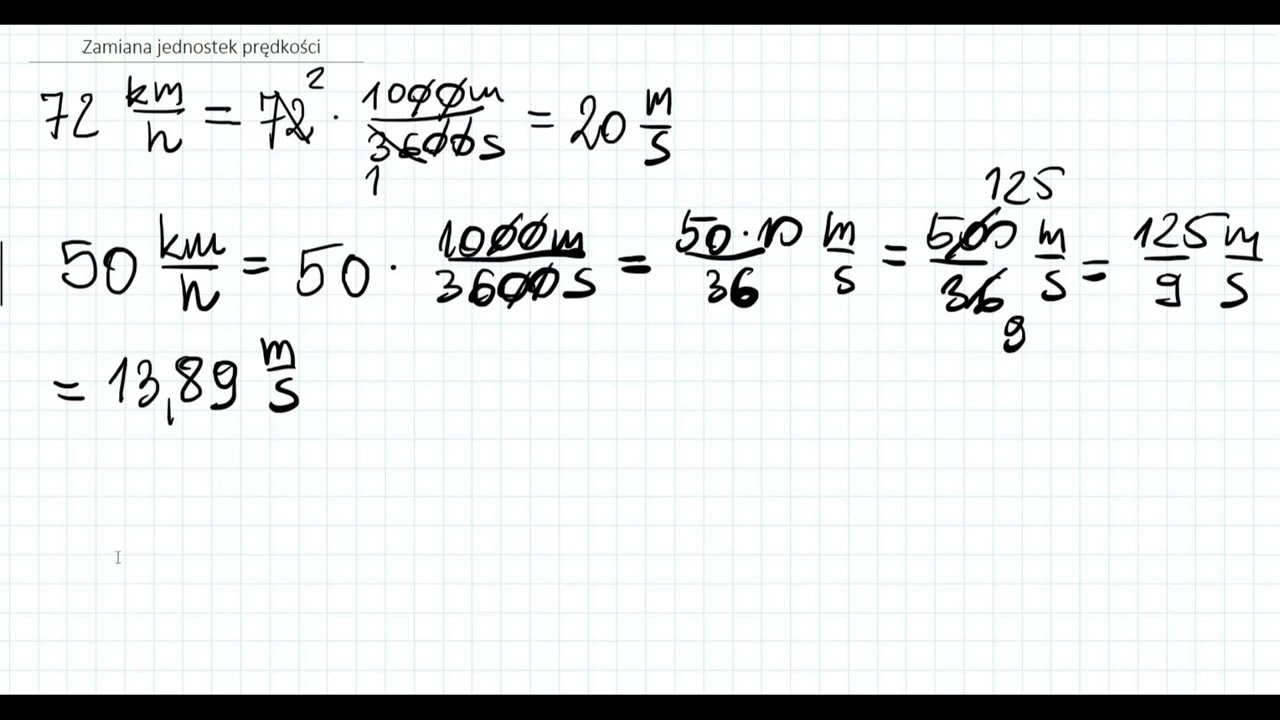 Zamiana jednostek prędkości
72 km/h = 72 2 · 1000m/3600s 1 = 20 m/s
50 km/h = 50 · 1000m/3600s = 50·10/36 m/s = 500 125/36 9 m/s = 125/9 m/s
= 13,89 m/s